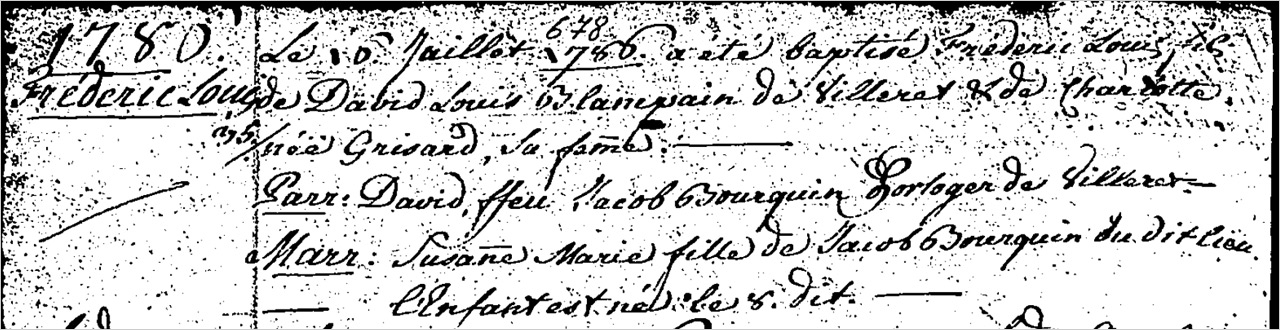 1780.
Frédéric Louis
Le 10. Juillet 1786. a été baptisé Frédéric Louis, fils
678
de David Louis Blampain de Villeret & de Charlotte
née Grisard, sa fem̄e.
Parr: David, ffeu Jacob Bourquin Horloger de Villeret
Marr: Susan̄e Marie fille de Jacob Bourquin du dit lieu.
l'Enfant est né le 8. dit.